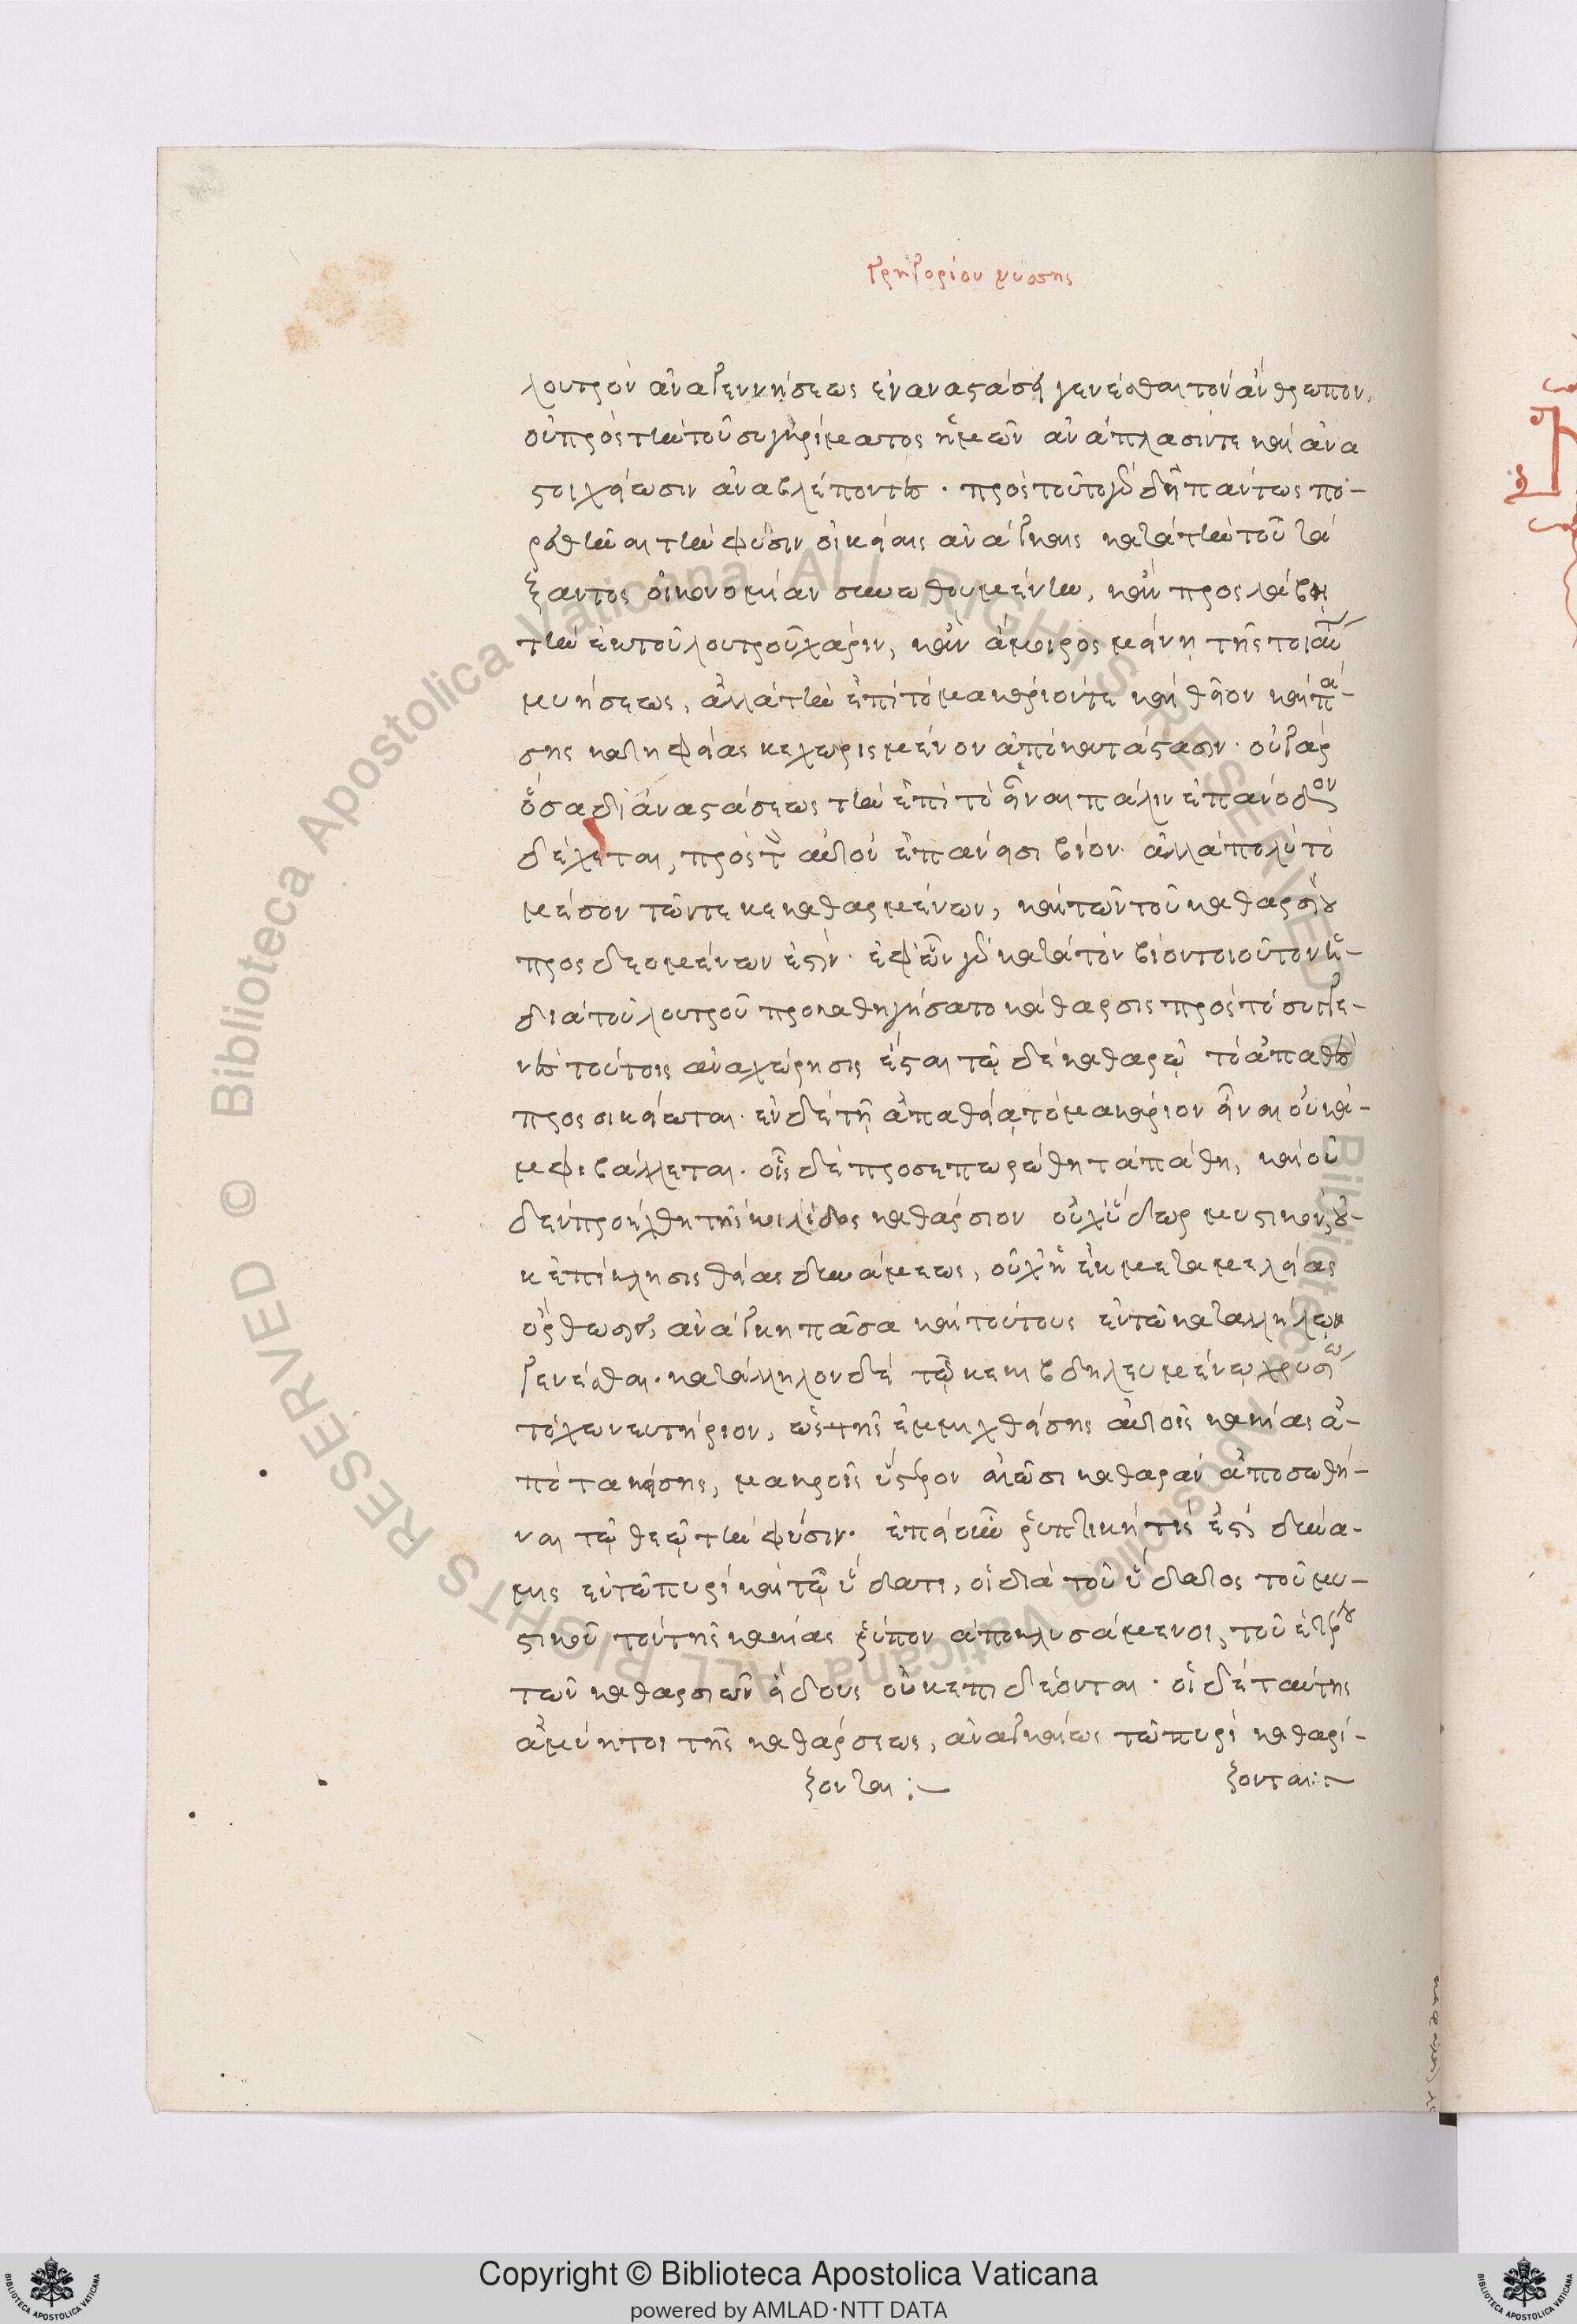 Γρηγορίου νύσης
λουτρὸν ἀναγεννήσεως ἐν ἀναστάσει γενέσθαι τὸν ἄνθρωπον,
οὐ πρὸς τὴν τοῦ συγκρίματος ἡμῶν ἀνάπλασίν τε καὶ ἀνα
στοιχείωσιν ἀναβλέποντες. πρὸς τοῦτο γὰρ δεῖ πάντως πο-
ρευθῆναι τὴν φύσιν οἰκείαις ἀνάγκαις κατὰ τὴν τοῦ τά
ξαντος οἰκονομίαν συνωθουμένην, κἂν προσλάβῃ
τὴν ἐκ τοῦ λουτροῦ χάριν, κἂν ἄμοιρος μείνῃ τῆς τοιαύτ
μυήσεως, ἀλλὰ τὴν ἐπὶ τὸ μακάριόν τε καὶ θεῖον καὶ πά-
σης κατηφείας κεχωρισμένον ἀποκατάστασιν. οὐ γὰρ
ὅσα δι ἀναστάσεως τὴν ἐπὶ τὸ εἶναι πάλιν ἐπάνοδον
δέχεται, πρὸς τὸν αὐτὸν ἐπάνεισι βίον. ἀλλὰ πολὺ τὸ
μέσον τῶν τε κεκαθαρμένων, καὶ τῶν τοῦ καθαρσίου
προσδεομένων ἐστίν. ἐφ' ὧν γὰρ κατὰ τὸν βίον τοιοῦτον ἡ-
διὰ τοῦ λουτροῦ προκαθηγήσατο κάθαρσις πρὸς τὸ συγγε-
νὲς τούτοις ἀναχώρησις ἔσται τῷ δὲ καθαρῷ τὸ ἀπαθὲς
προσωκείωται. ἐν δὲ τῇ ἀπαθείᾳ τὸ μακάριον εἶναι οὐκ ἀ-
μφιβάλλεται. οἷς δὲ προσεπωρώθη τὰ πάθη, καὶ οὐ
δὲν προήχθη τῆς κηλίδος καθάρσιον οὐχ ὕδωρ μυστικὸν, οὐ-
κ ἐπίκλησις θείας δυνάμεως, οὐχ ἡ ἐκ μεταμελείας
ὀρθωσις, ἀνάγκη πᾶσα καὶ τούτους ἐν τῶ καταλλήλω
γενέσθαι. κατάλληλον δὲ τῷ κεκιβδηλευμένῳ χρυσίω
τὸ χωνευτήριον, ὡς τῆς ἐμμιχθείσης αὐτοῖς κακίας ἀ-
ποτακείσης, μακροῖς ὕστερον αἰῶσι καθαρὰν ἀποσωθῆ-
ναι τῷ θεῷ τὴν φύσιν. ἐπεὶ οὖν ῥυπτική τίς ἐστι δύνα-
μις ἐν τῶ πυρὶ καὶ τῷ ὕδατι, οἱ διὰ τοῦ ὕδατος τοῦ μυ-
στικοῦ τὸν τῆς κακίας ῥύπον ἀποκλυσάμενοι, τοῦ ἑτέρου
τῶν καθαρσίων εἴδους οὐκ ἐπιδέονται. οἱ δὲ ταύτης
ἀμύητοι τῆς καθάρσεως, ἀναγκαίως τῶ πυρὶ καθαρί-
ζονται:- ζονται:-